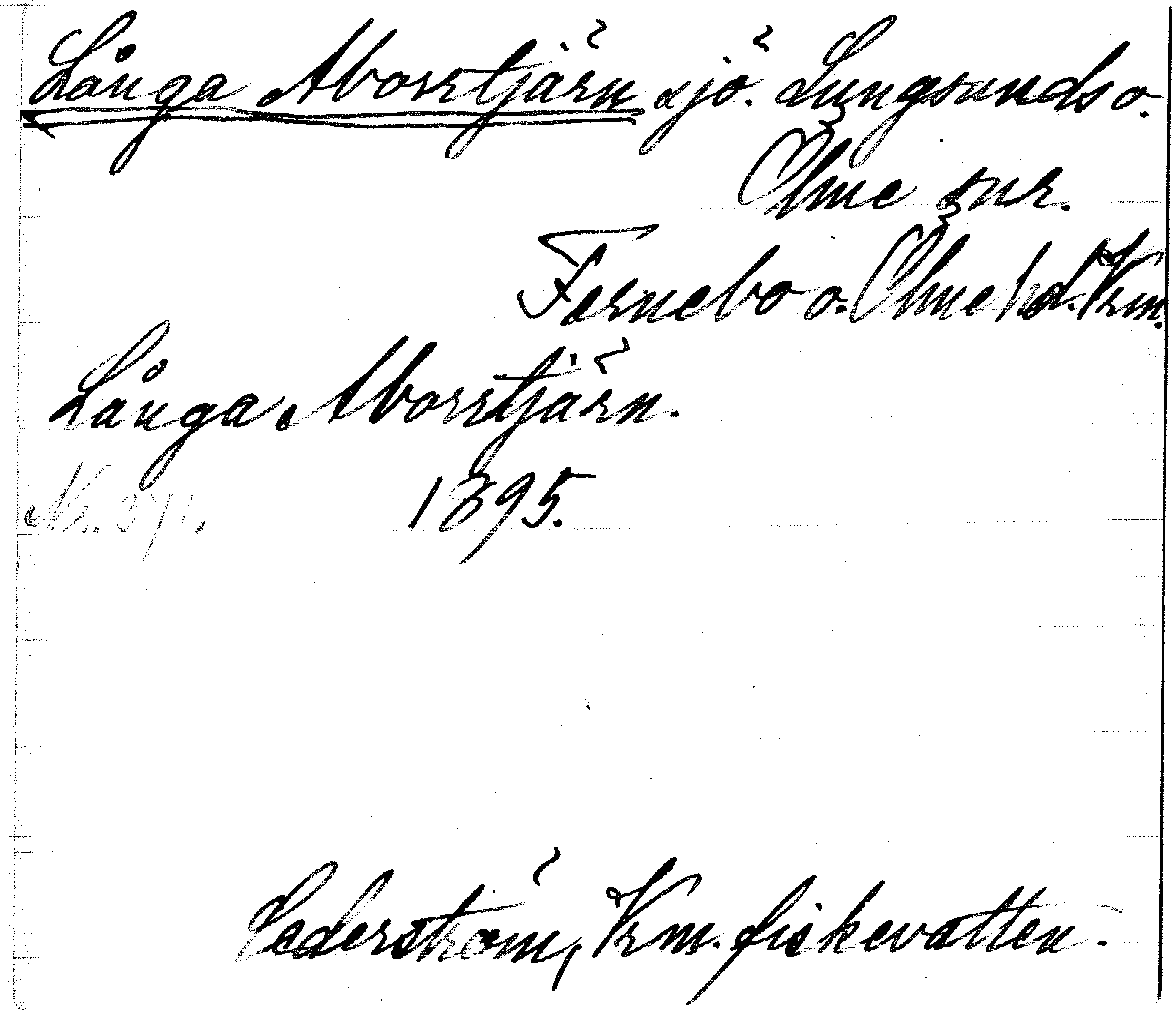 Långa Aborrtjärn sjö. Lungsunds o.
Ölme snr.
Fernebo o. Ölme hd. Vrm.
Långa Aborrtjärn.
1895.
Cederström, Vrm. fiskevatten.